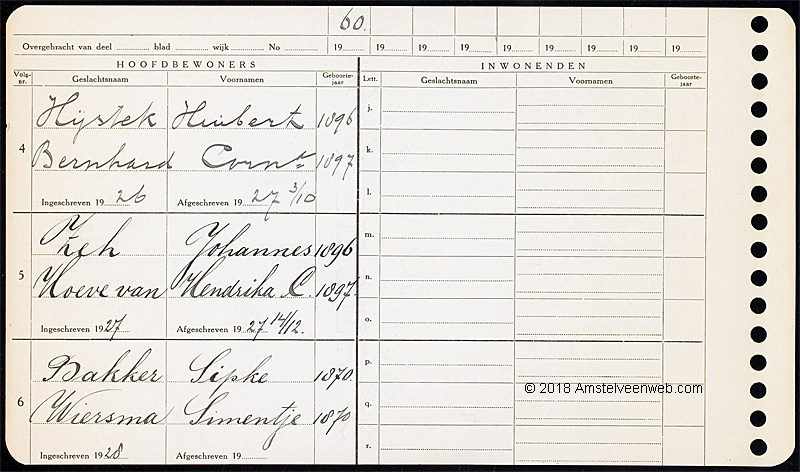 60.
Overgebracht van deel ............ blad ........ wijk ........ No ............ 19...... 19...... 19...... 19...... 19...... 19...... 19...... 19...... 19......
HOOFDBEWONERS INWONENDEN
Volg-nr. Geslachtsnaam Voornamen Geboorte-jaar Lett. Geslachtsnaam Voornamen Geboorte-jaar
Hijstek Huibert 1896 j.
4 Bernhard Corna 1897 k.
Ingeschreven 1926 Afgeschreven 1927 3/10 l.
Zeh Johannes 1896 m.
5 Hoeve van Hendrika C. 1897. n.
Ingeschreven 1927 Afgeschreven 1927 14/12. o.
Bakker Sipke 1870. p.
© 2018 Amstelveenweb.com
6 Wiersma Simentje 1870 q.
Ingeschreven 1928 Afgeschreven 19...... r.